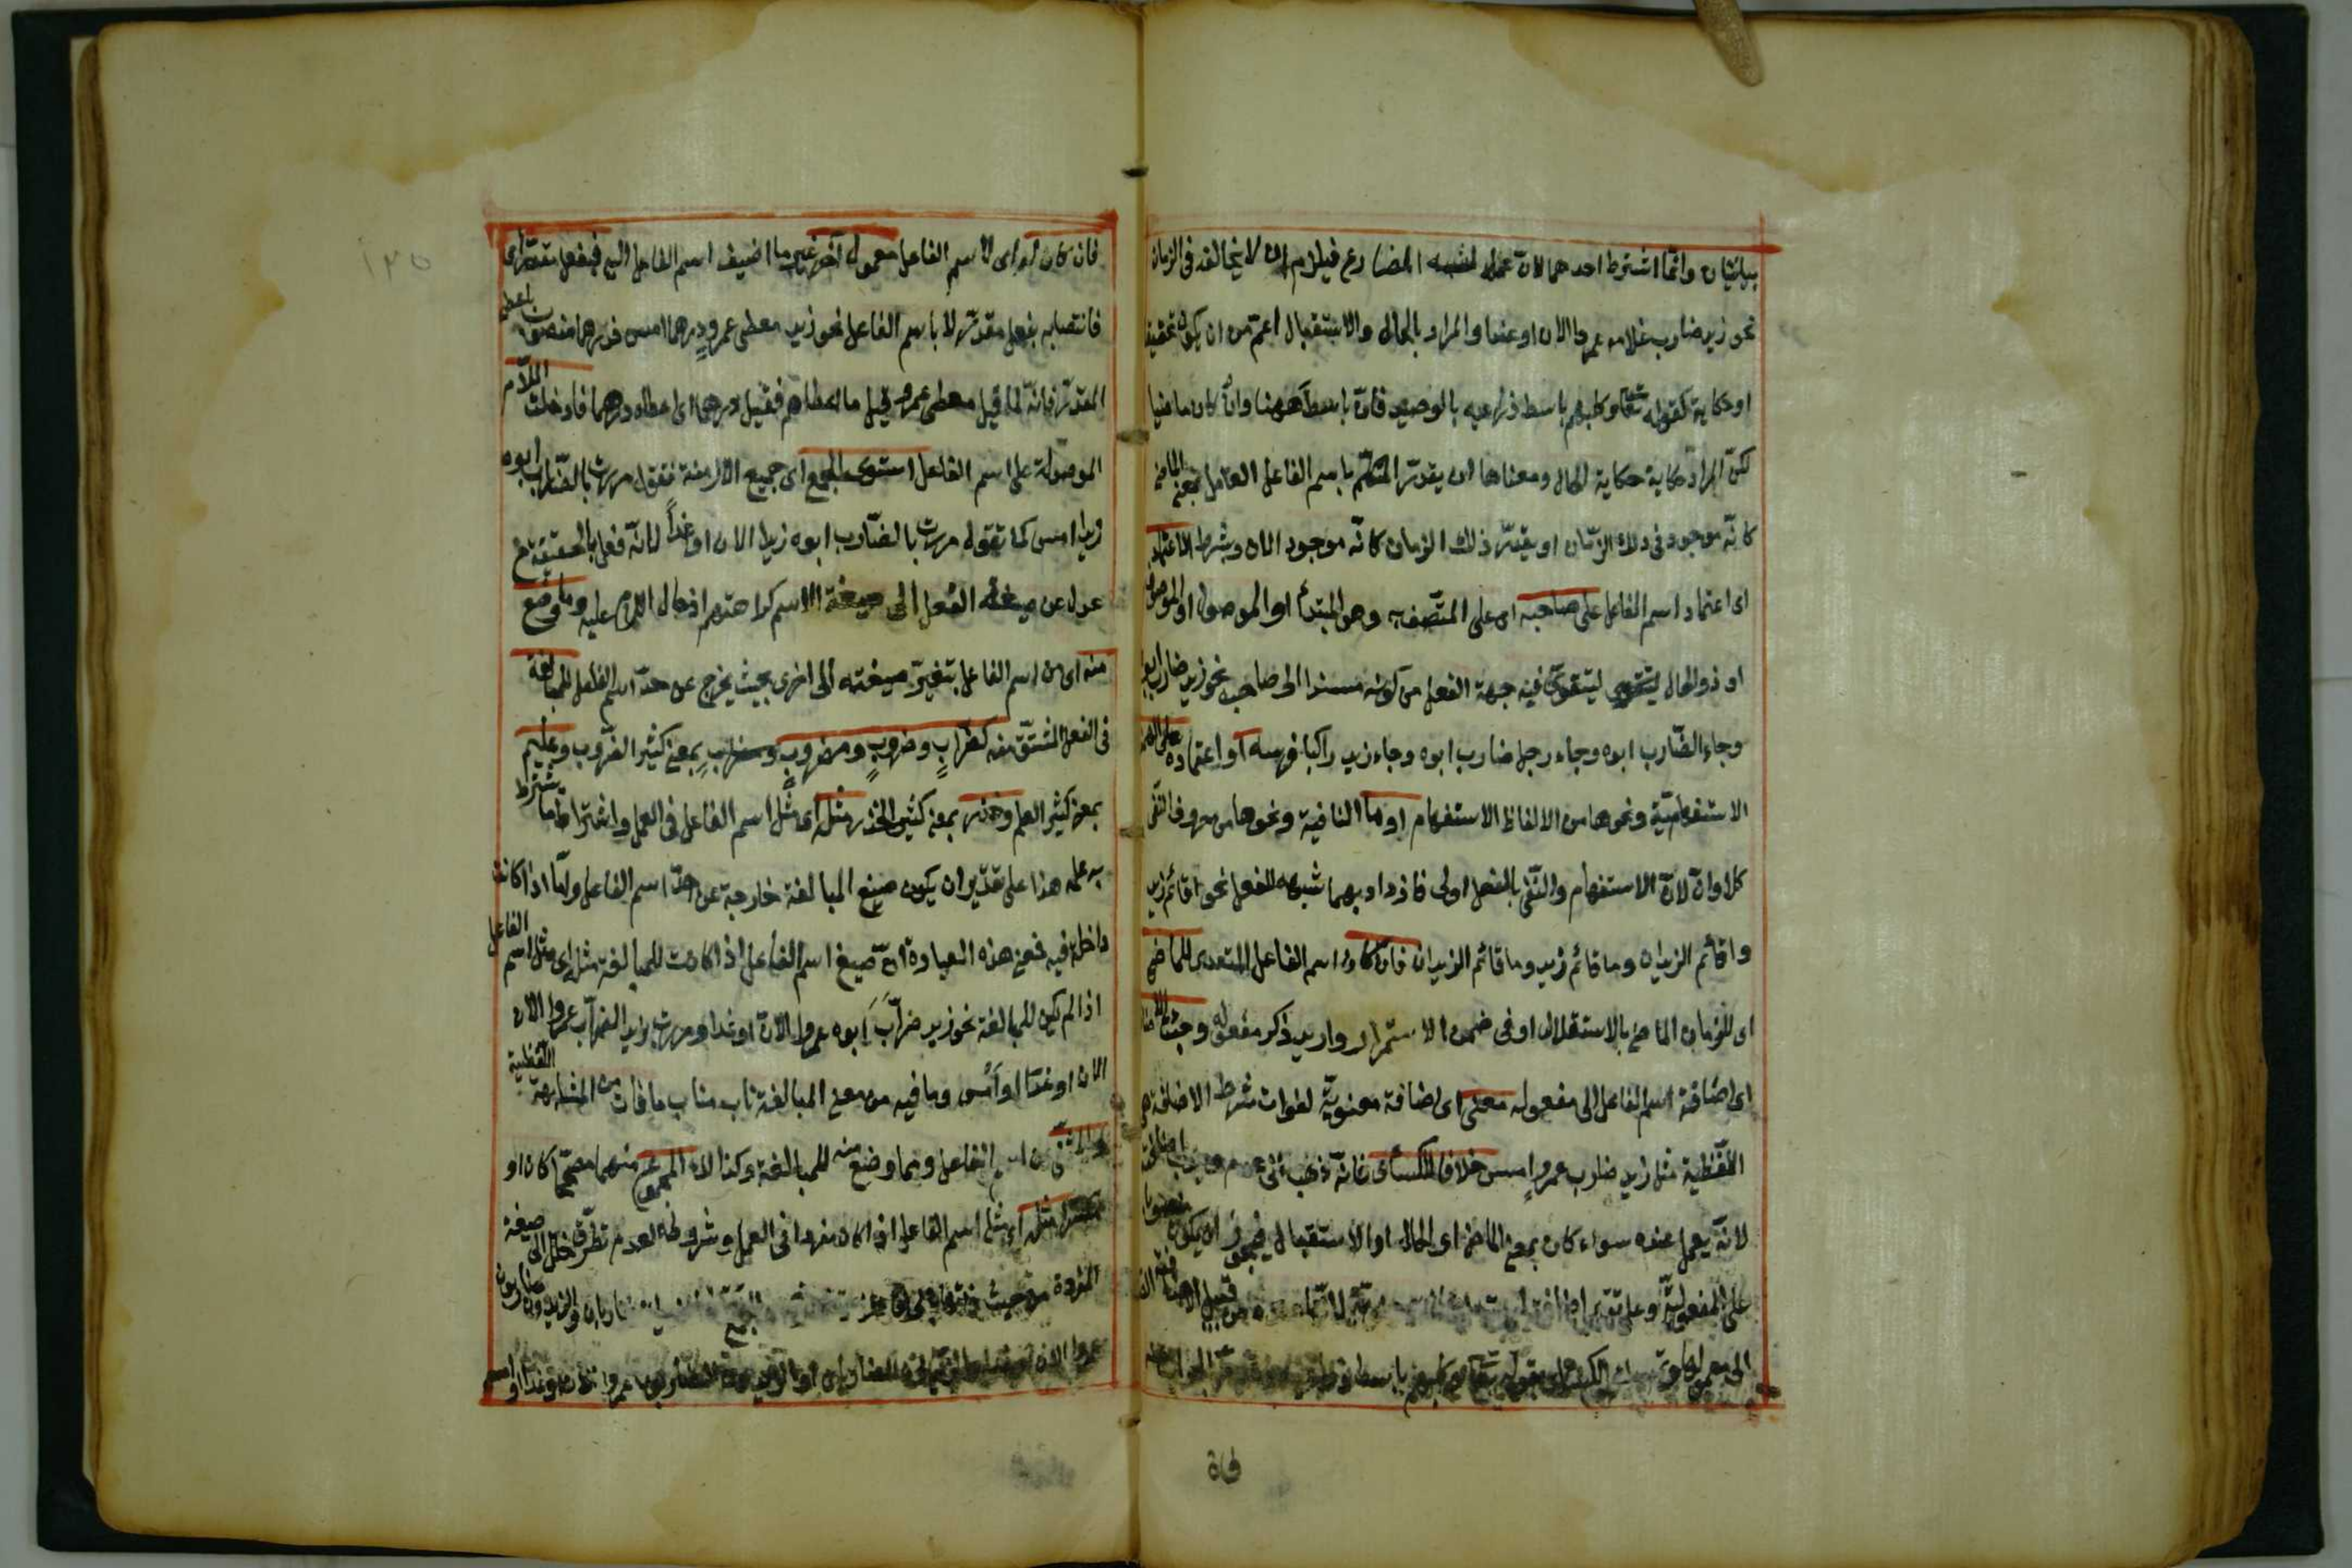 بيانيتان وانما اشترط احدهما لان عمله لشبه المضارع فيلزم ان لا يخالفه فى الزمان
نحو زيد ضارب غلامه عمروا الان او غدا والمراد بالحال والاستقبال اعم من ان يكون تحقيقا
او حكاية كقوله تعالى وكلبهم باسط ذراعيه بالوصيد فان باسط ههنا وان كان ماضيا
لكن المراد حكاية الحال ومعناها ان يقدر المتكلم باسم الفاعل العامل بمعنى الماضى
كانه موجود فى ذلك الزمان او يقدر ذلك الزمان كانه موجود الان وشرط الاعتماد
اى اعتماد اسم الفاعل على صاحبه اى على المتصف به وهو المبتدأ او الموصول او الموصوف
او ذو الحال ليتقوى فيه جهة الفعل من كونه مسندا الى صاحبه نحو زيد ضارب ابوه
وجاء الضارب ابوه وجاء رجل ضارب ابوه وجاء زيد راكبا فرسه او اعتماده على الهمزة
الاستفهامية ونحوها من الالفاظ الاستفهام او ما النافية ونحوها من حروف النفى
كلا وان لان الاستفهام والنفى بالفعل اولى فازداد بهما شبهه للفعل نحو اقائم زيد
واقائم الزيدان وما قائم زيد وما قائم الزيدان فان كان اسم الفاعل المتعدى للماضى
اى للزمان الماضى بالاستقلال او فى ضمن الاستمرار واريد ذكر مفعوله وجبت الاضافة
اى اضافة اسم الفاعل الى مفعوله معنى اى اضافة معنوية لفوات شرط الاضافة
اللفظية مثل زيد ضارب عمرو امس خلافا للكسائى فانه ذهب الى عدم وجوب اضافته
لانه يعمل عنده سواء كان بمعنى الماضى او الحال او الاستقبال فيجوز ان يكون منصوبا
على المفعولية وعلى تقدير اضافته ليست معنوية لانها عنده من قبيل الاضافة
الى معموله وتمسك الكسائى بقوله تعالى وكلبهم باسط ذراعيه
فان
١٣٥
فان كان له اى لاسم الفاعل معمول آخر غير ما اضيف اسم الفاعل اليه فبفعل مقدر اى
فانتصابه بفعل مقدر لا باسم الفاعل نحو زيد معطى عمرو درهما امس فدرهما منصوب باعطى
المقدر فانه لما قيل معطى عمرو قيل ما اعطاه فقيل درهما اى اعطاه درهما فان دخلت اللام
الموصولة على اسم الفاعل استوى الجميع اى جميع الازمنة فتقول مررت بالضارب ابوه
زيدا امس كما تقول مررت بالضارب ابوه زيدا الان او غدا لانه فعل بالحقيقة
عدل عن صيغة الفعل الى صيغة الاسم كراهتهم ادخال اللام عليه وما وضع
منه اى من اسم الفاعل بتغير صيغته الى اخرى بحيث يخرج عن حد اسم الفاعل للمبالغة
فى الفعل المشتق منه كضراب وضروب ومضراب بمعنى كثير الضرب وعليم
بمعنى كثير العلم وحذر بمعنى كثير الحذر مثله اى مثل اسم الفاعل فى العمل واشتراط ما يشترط
به عمله هذا على تقدير ان يكون صيغ المبالغة خارجة عن حد اسم الفاعل واما اذا كانت
داخلة فيه فمعنى هذه العبارة ان صيغ اسم الفاعل اذا كانت للمبالغة مثل اى مثل اسم الفاعل
اذا لم تكن للمبالغة نحو زيد ضراب ابوه عمروا الان او غدا ومررت بزيد الضراب عمروا الان
الان او غدا او امس وما فيه من معنى المبالغة ناب مناب ما فات من المشابهة اللفظية
والمثنى من اسم الفاعل ومما وضع منه للمبالغة وكذا المجموع منهما مصححا كان او
مكسرا مثله اى مثل اسم الفاعل اذا كان مفردا فى العمل وشروطه لعدم تطرق خلل الى صيغة
المفردة من حيث
عمروا الان